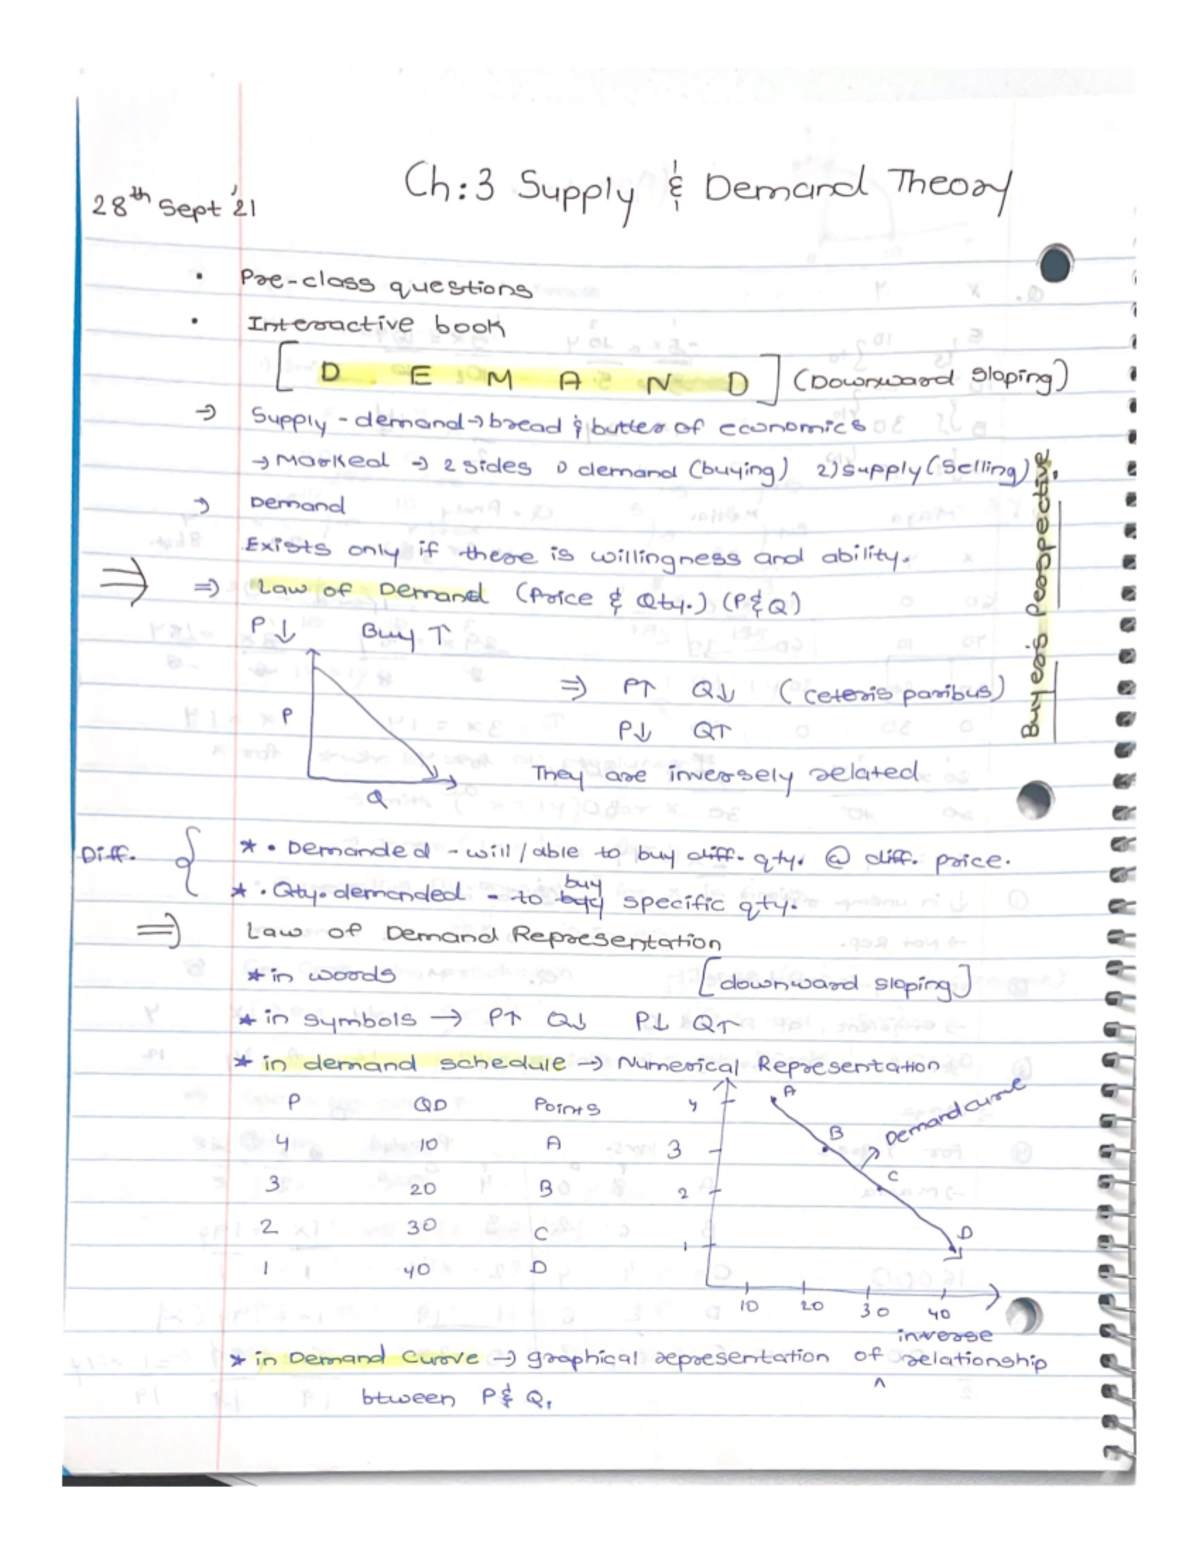 Ch:3 Supply & Demand Theory
28th Sept '21
• Pre-class questions
• Interactive book
[ D E M A N D ] (Downward Sloping)
→ Supply - demand → bread & butter of economics
→ Marked → 2 sides 1) demand (buying) 2) supply (Selling)
→ Demand
Exists only if there is willingness and ability.
⇒ ⇒ Law of Demand (Price & Qty.) (P&Q)
Buyer's Perspective
P↓ Buy ↑
⇒ P↑ Q↓ (Ceteris paribus)
P
P↓ Q↑
They are inversely related
Q
Diff. { * • Demanded - will/able to buy diff. qty. @ diff. price.
buy
* • Qty. demanded - to specific qty.
⇒ Law of Demand Representation
* in words [downward sloping]
* in symbols → P↑ Q↓ P↓ Q↑
* in demand schedule → Numerical Representation
P QD Points
4 10 A
3 20 B
2 30 C
1 40 D
4 A
3 B Demand curve
2 C
1 D
10 20 30 40
inverse
* in Demand Curve → graphical representation of ^ relationship
btween P & Q.